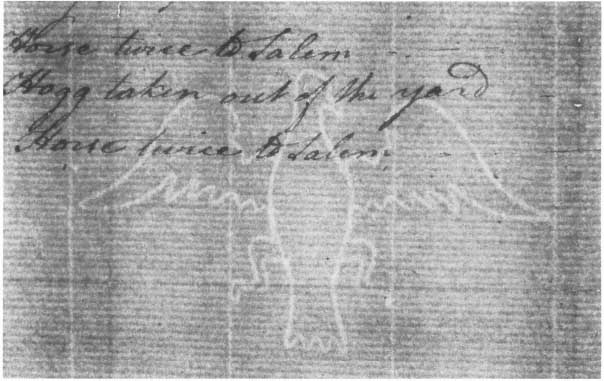 Horse twice to Salem
Hogg taken out of the yard
Horse twice to Salem